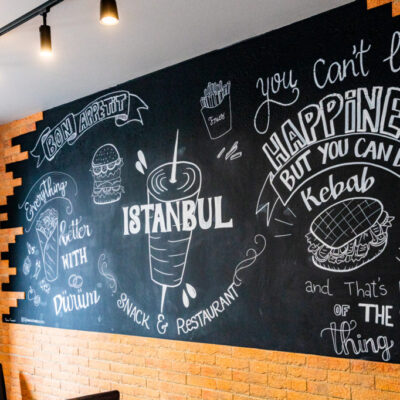 BON APPETIT
Everything
better
WITH
Dürüm
ISTANBUL
SNACK & RESTAURANT
you can't
HAPPINE
BUT YOU CAN
Kebab
and THAT'S
OF THE
thing